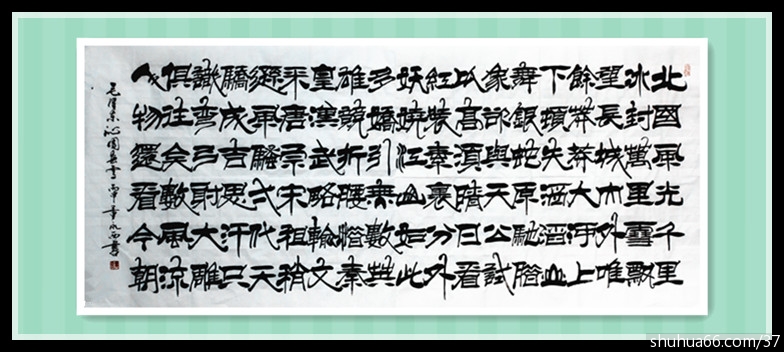 北國風光千里
冰封萬里雪飄
望長城內外唯
餘莽莽大河上
下頓失滔滔山
舞銀蛇原馳臘
象欲與天公試
比高須晴日看
紅裝素裹分外
妖嬈江山如此
多嬌引無數英
雄競折腰惜秦
皇漢武略輸文
采唐宗宋祖稍
遜風騷弌代天
驕成吉思汗只
識彎弓射大雕
俱往矣數風流
人物還看今朝
毛澤東沁園春雪 丙申年
shuhua66.com/37